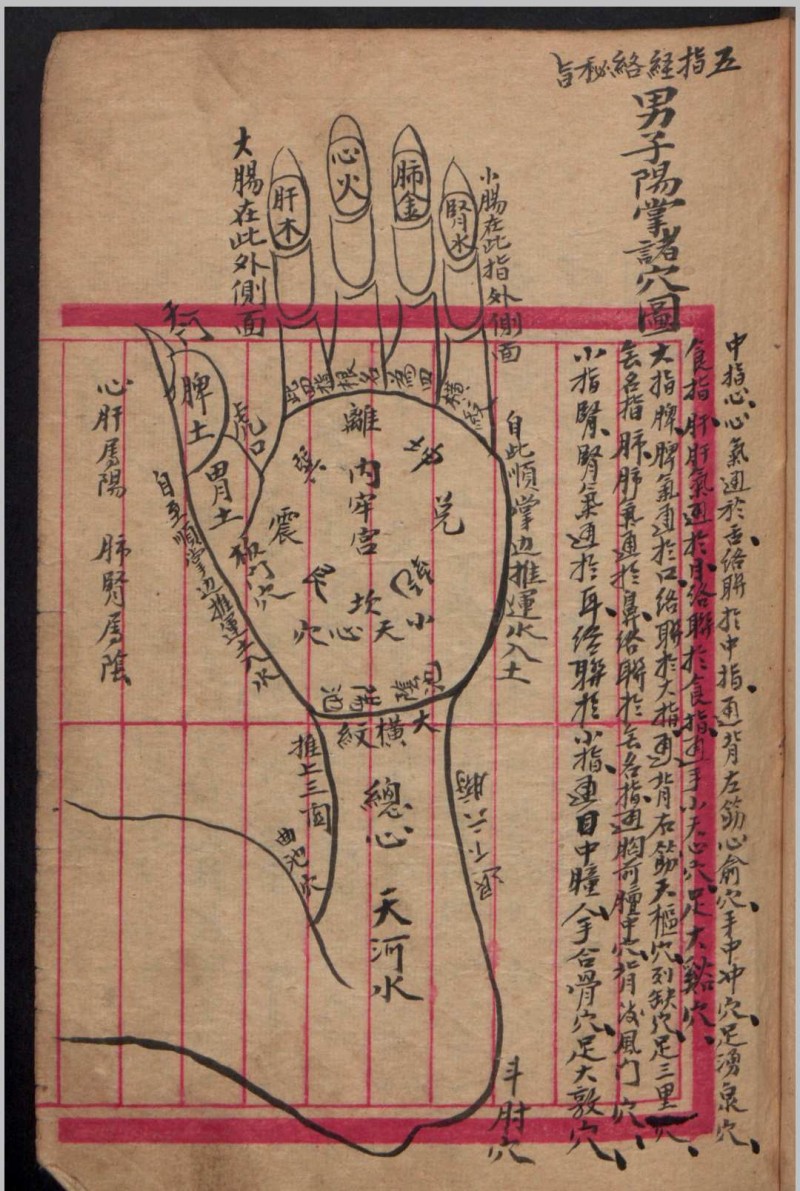 五指経絡秘旨
男子陽掌諸穴圖
中指心、心氣通於舌絡聯於中指通背左筋心俞穴、手中冲穴、足湧泉穴、
食指肝、肝氣通於目絡聯於食指、通手小天心穴、足大谿穴、
大指脾、脾氣通於口絡聯於大指、通背右筋天樞穴、列缺穴、足三里穴、
無名指肺、肺氣通於鼻、絡聯於無名指、通胸前膻中穴、背後風門穴、
小指腎、腎氣通於耳、絡聯於小指、通目中瞳人、手合骨穴、足大敦穴、
小腸在此指外側面
腎水
肺金
心火
肝木
大腸在此外側面
此四指根名為四橫紋
自此順掌边推運水入土
離
內牢宮
兌
震
坎
小天心穴
虎口
脾土
胃土
板门穴
自至順掌边推運土入水
心肝属陽
肺腎属陰
大橫紋
推上三関
曲池穴
總心
天河水
退下六腑
斗肘穴